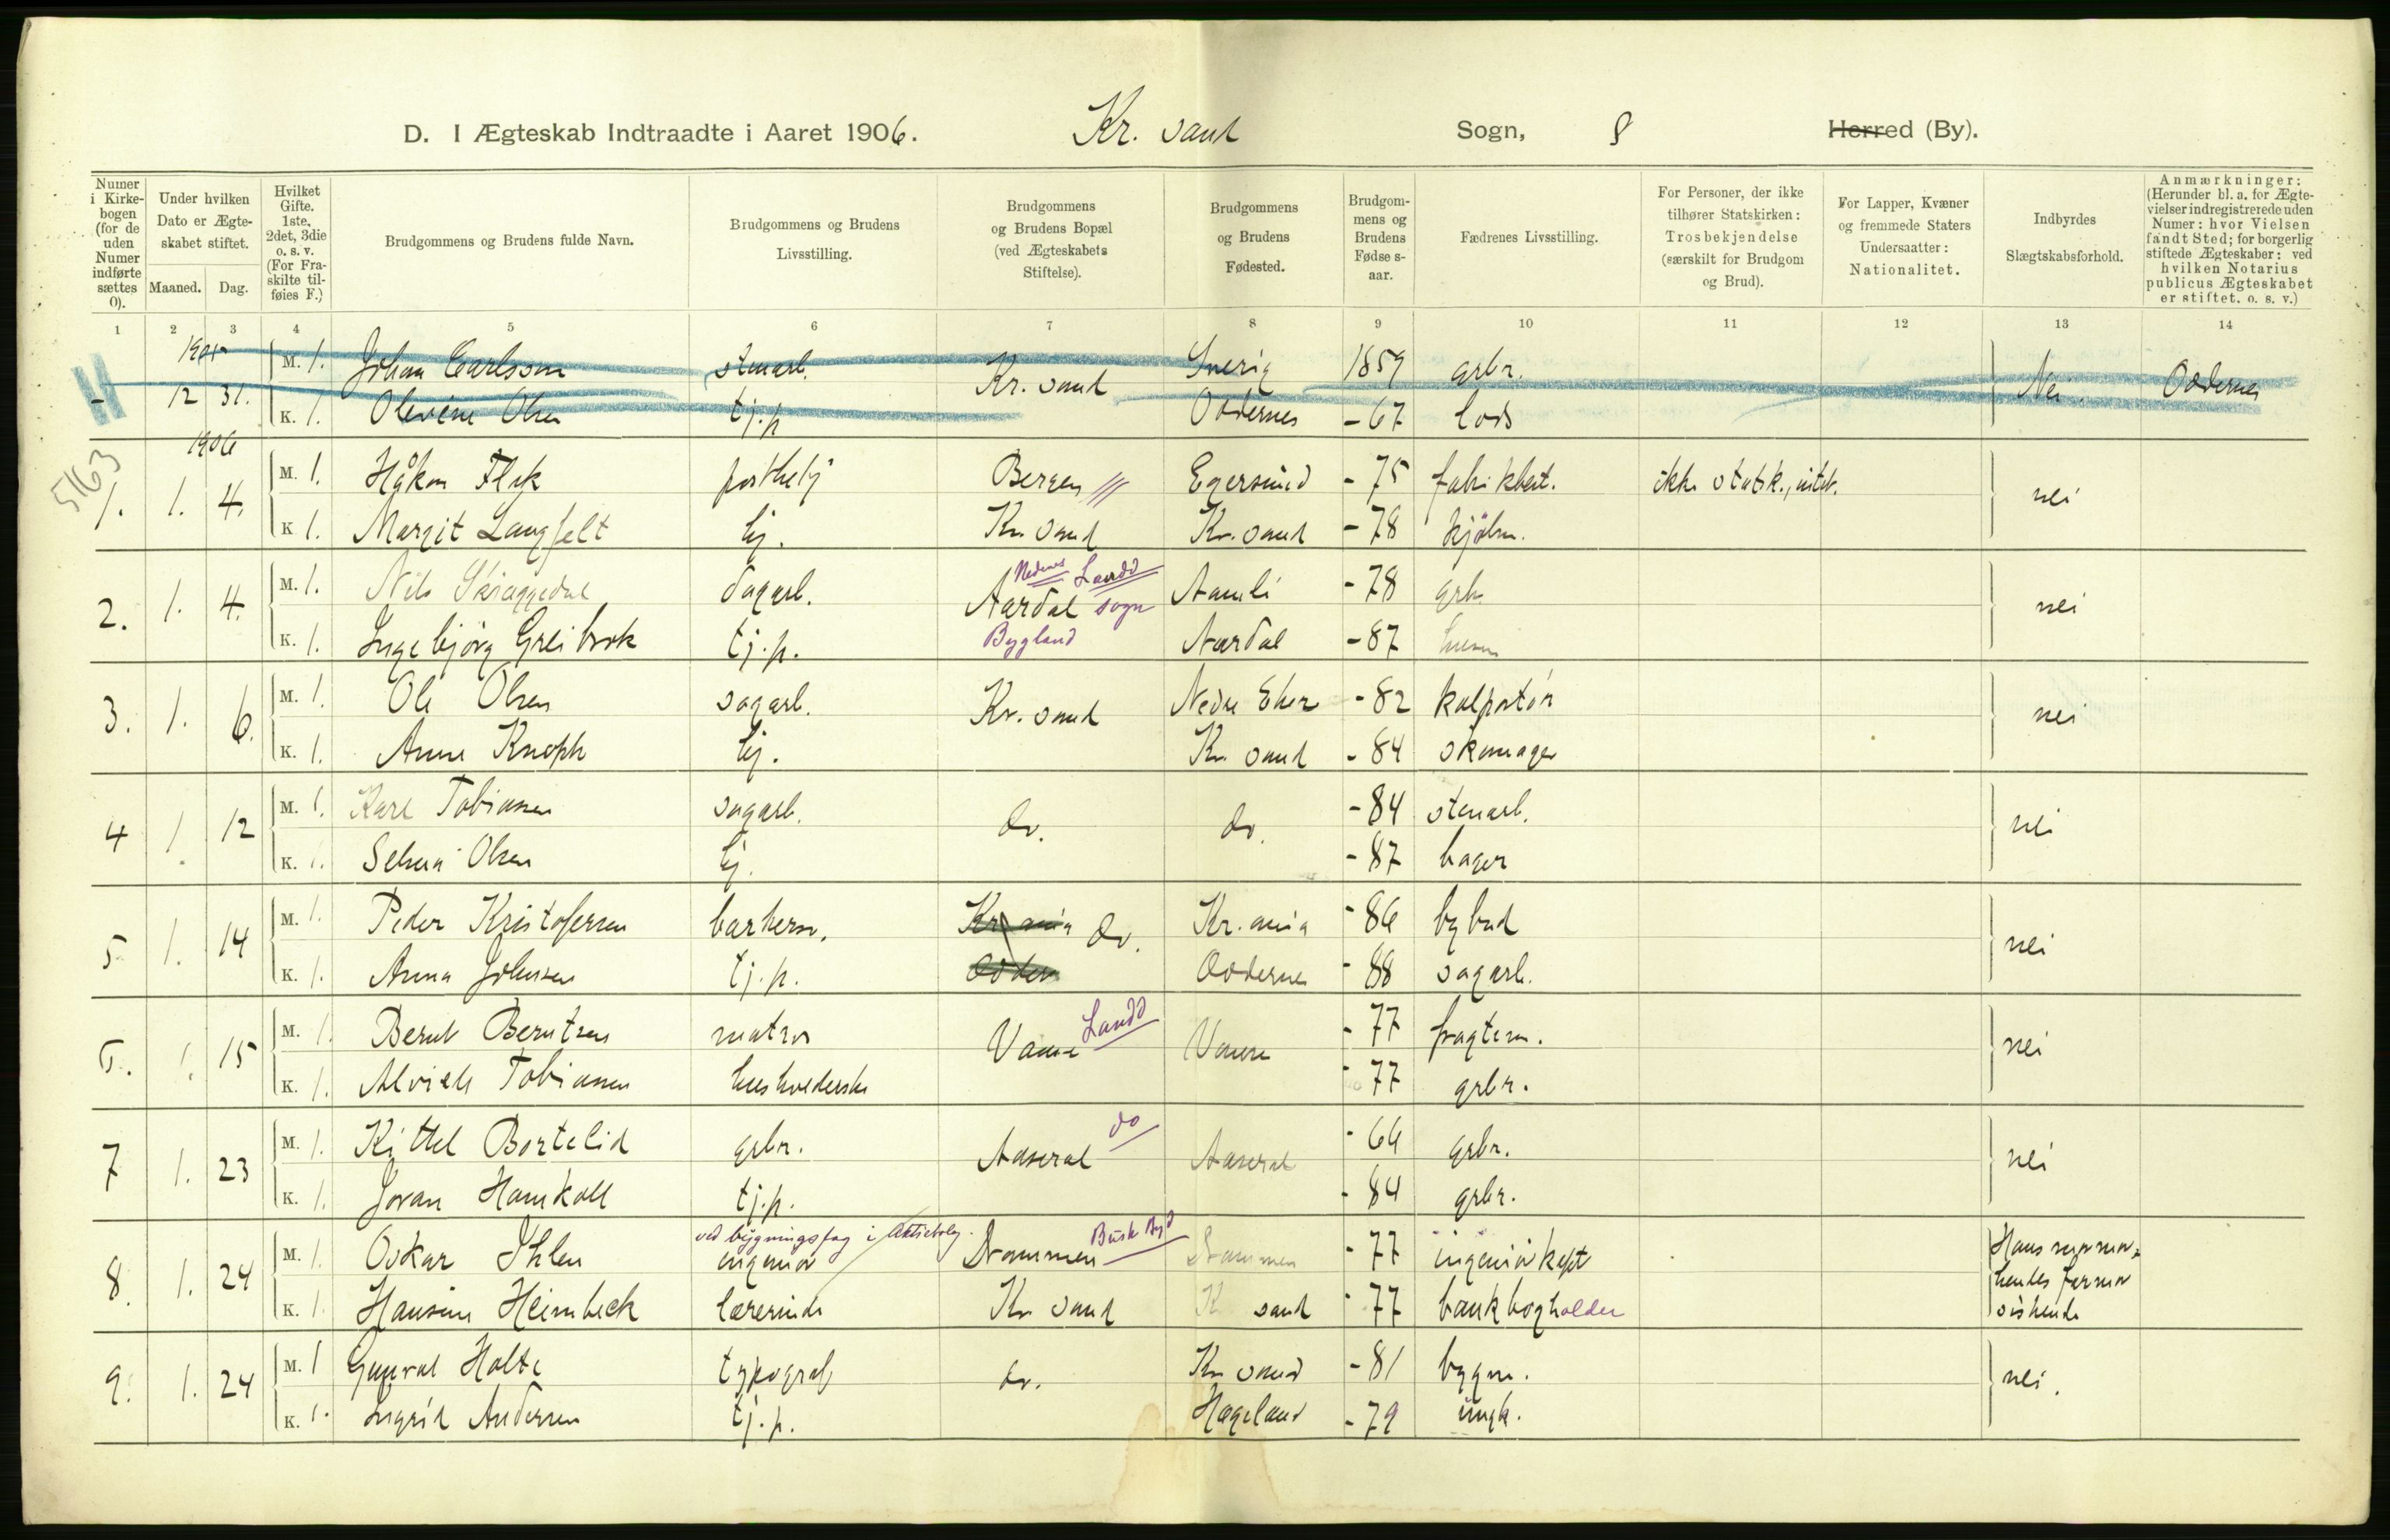 D. I Ægteskab Indtraadte i Aaret 1906. Kr. sand Sogn, Herred (By).
Numer i Kirkebogen (for de uden Numer indførte sættes 0).
Under hvilken Dato er Ægteskabet stiftet.
Maaned. Dag.
Hvilket Gifte. 1ste, 2det, 3die o. s. v. (For Fraskilte tilføies F.)
Brudgommens og Brudens fulde Navn.
Brudgommens og Brudens Livsstilling.
Brudgommens og Brudens Bopæl (ved Ægteskabets Stiftelse).
Brudgommens og Brudens Fødested.
Brudgommens og Brudens Fødselsaar.
Fædrenes Livsstilling.
For Personer, der ikke tilhører Statskirken: Trosbekjendelse (særskilt for Brudgom og Brud).
For Lapper, Kvæner og fremmede Staters Undersaatter: Nationalitet.
Indbyrdes Slægtskabsforhold.
Anmærkninger: (Herunder bl. a. for Ægtevielser indregistrerede uden Numer: hvor Vielsen fandt Sted; for borgerlig stiftede Ægteskaber: ved hvilken Notarius publicus Ægteskabet er stiftet. o. s. v.)
1 2 3 4 5 6 7 8 9 10 11 12 13 14
1905
M. 1. Johan Carlsson stenarb. Sverig 1859 grbr.
- 12 31. Kr. sand Nei. Oddernes
K. 1. Olevine Olsen tj.p Oddernes -67 lods
1906
5163
M. 1. Håkon Bergen Egersund -75 ikke statsk.,
1. 1. 4. nei
K 1. Margit Langfelt hj. Kr. sand Kr. sand -78 kjøbm.
M. 1. Nils dagarb. Nedenes Landd Aamli -78 grb.
2. 1. 4. Aardal sogn nei
K. 1. Ingebjörg Greibrok tj.p. Bygland Aardal -87
M. 1. Ole Olsen sagarb. Nedre Eker -82 kolportør
3. 1. 6. Kr. sand nei
K. 1. Anne Knoph hj. Kr. sand -84 skomager
M. 1. Karl Tobiasen sagarb. -84 stenarb.
4 1. 12 do. do. nei
K. 1. Selma Olsen hj. -87 bager
M. 1. Peder Kristofersen barberm. Kr. ania do. Kr. ania -86 bybud
5 1. 14 nei
K. 1. Anna Johnsen tj.p. Oddern Oddernes -88 sagarb.
M. 1. Bernt Berntsen matros Landd -77 fragtem.
6. 1. 15 Vanse Vanse nei
K. 1. Alvilde Tobiasen husholderske -77 grbr.
M. 1. Kittel Bortelid grbr. do -64 grbr.
7 1. 23 Aaseral Aaseral nei
K. 1. Joran Hamkoll tj.p. -84 grbr.
ved bygningsfag i Aktiebolag.
M. 1. Oskar Ihlen ingeniør Drammen Busk Byd Drammen -77 ingeniørkapt Hans mormor,
8. 1. 24 hendes farmor
K. 1. Hansine Heimbeck lærerinde Kr sand K sand -77 bankbogholder søskende
M. 1 Gunvald Holte typograf Kr sand -81 bygm.
9. 1. 24 do. nei.
K. 1. Ingrid Andersen tj.p. Hægeland -79 ungk.